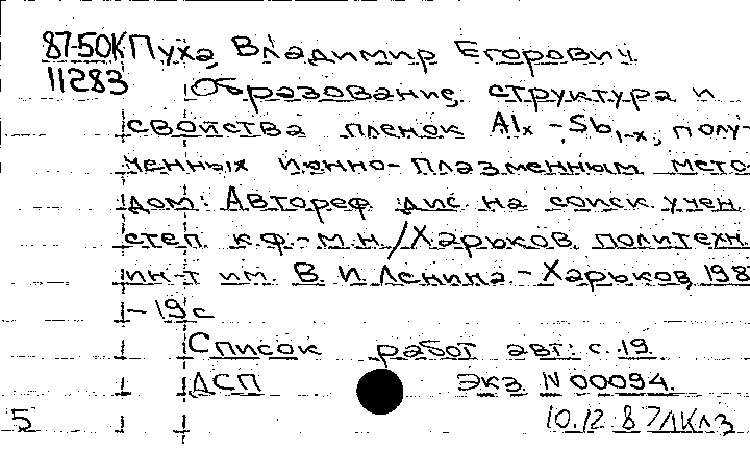 87-50К Пуха, Владимир Егорович
11283 Образование, структура и
свойства пленок Alx - Sb1-x, полу-
ченных ионно-плазменным мето-
дом: Автореф. дис. на соиск. учен.
степ. к.ф.-м.н. / Харьков. политехн.
ин-т им. В. И. Ленина - Харьков, 198
- 19 с
Список работ авт.: с. 19
ДСП Экз. N 00094.
5 10.12.87 ЛКЛЗ